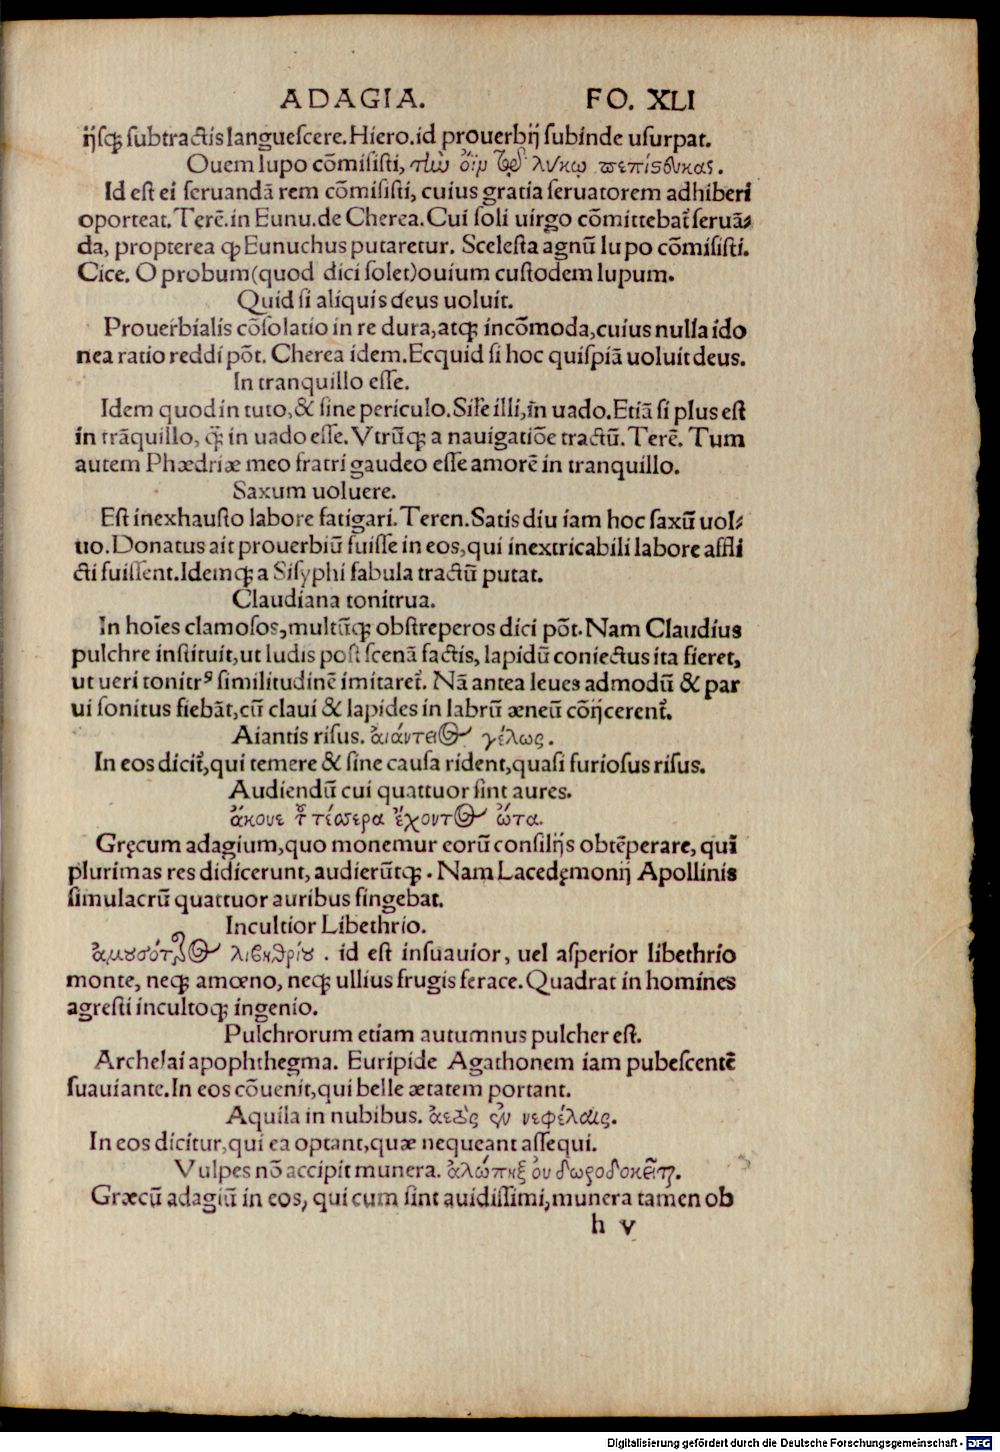 ADAGIA. FO. XLI
ijſqꝫ ſubtractis langueſcere. Hiero. id prouerbij ſubinde uſurpat.
Ouem lupo cōmiſiſti, λύκῳ
Id eſt ei ſeruandā rem cōmiſiſti, cuius gratia ſeruatorem adhiberi
oporteat. Terē. in Eunu. de Cherea. Cui ſoli uirgo cōmittebat᷑ ſeruā⸗
da, propterea ꝙ Eunuchus putaretur. Sceleſta agnū lupo cōmiſiſti.
Cice. O probum (quod dici ſolet) ouium cuſtodem lupum.
Quid ſi aliquis deus uoluit.
Prouerbialis cōſolatio in re dura, atqꝫ incōmoda, cuius nulla ido
nea ratio reddi pōt. Cherea idem. Ecquid ſi hoc quiſpiā uoluit deus.
In tranquillo eſſe.
Idem quod in tuto, & ſine periculo. Sil̃e illi, in uado. Etiā ſi plus eſt
in trāquillo, q̄ in uado eſſe. Vtrūqꝫ a nauigatiōe tractū. Terē. Tum
autem Phædriæ meo fratri gaudeo eſſe amorē in tranquillo.
Saxum uoluere.
Eſt inexhauſto labore fatigari. Teren. Satis diu iam hoc ſaxū uol⸗
uo. Donatus ait prouerbiū fuiſſe in eos, qui inextricabili labore affli
cti fuiſſent. Idemqꝫ a Siſyphi fabula tractū putat.
Claudiana tonitrua.
In hoīes clamoſos, multūqꝫ obſtreperos dici pōt. Nam Claudius
pulchre inſtituit, ut ludis poſt ſcenā factis, lapidū coniectus ita fieret,
ut ueri tonitrꝰ ſimilitudinē imitaret᷑. Nā antea leues admodū & par
ui ſonitus fiebāt, cū claui & lapides in labrū æneū cōijcerent᷑.
Aiantis riſus. ἀιάντειος γέλως.
In eos dicit᷑, qui temere & ſine cauſa rident, quaſi furioſus riſus.
Audiendū cui quattuor ſint aures.
ἄκουε τ͂ τέσσερα ἔχοντος ὦτα.
Gręcum adagium, quo monemur eorū conſilijs obtēperare, qui
plurimas res didicerunt, audierūtqꝫ. Nam Lacedęmonij Apollinis
ſimulacrū quattuor auribus fingebat.
Incultior Libethrio.
ἀμουσότερος λιβηθρίου. id eſt inſuauior, uel aſperior libethrio
monte, neqꝫ amœno, neqꝫ ullius frugis ferace. Quadrat in homines
agreſti incultoqꝫ ingenio.
Pulchrorum etiam autumnus pulcher eſt.
Archelai apophthegma. Euripide Agathonem iam pubeſcentē
ſuauiante. In eos cōuenit, qui belle ætatem portant.
Aquila in nubibus. ἀετὸς ἐν νεφέλαις.
In eos dicitur, qui ea optant, quæ nequeant aſſequi.
Vulpes nō accipit munera. ἀλώπηξ οὐ δωροδοκεῖται.
Græcū adagiū in eos, qui cum ſint auidiſſimi, munera tamen ob
h v
Digitalisierung gefördert durch die Deutsche Forschungsgemeinschaft - DFG